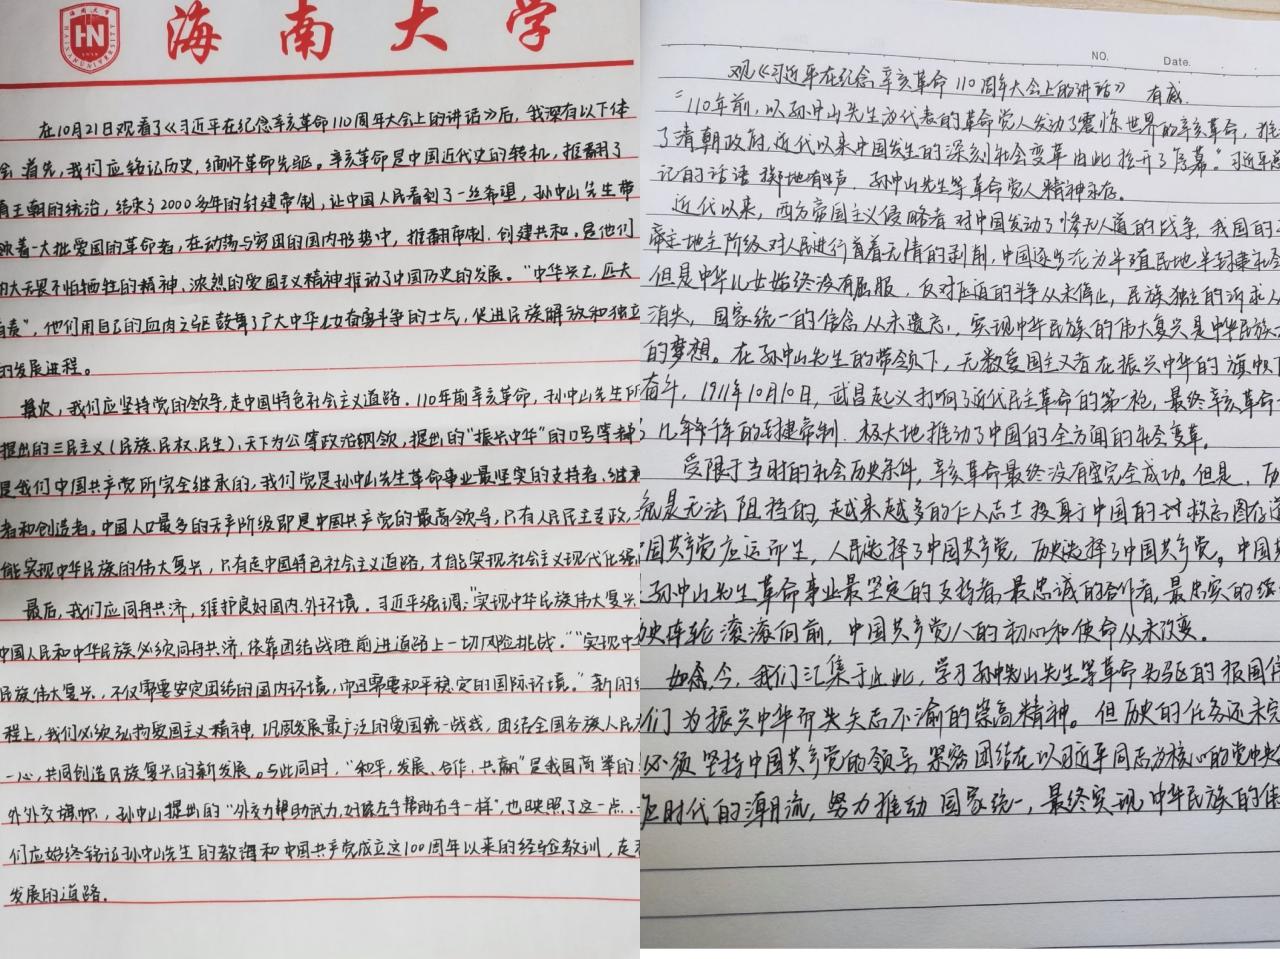 海南大学
在10月21日观看了《习近平在纪念辛亥革命110周年大会上的讲话》后，我深有以下体
会 首先，我们应铭记历史，缅怀革命先驱。辛亥革命是中国近代史的转机，推翻了
王朝的统治，结束了2000多年的封建帝制，让中国人民看到了一丝希望，孙中山先生带
着一大批爱国的革命者，在动荡与穷困的国内形势中，推翻帝制，创建共和，是他们
大无畏不怕牺牲的精神、浓烈的爱国主义精神推动了中国历史的发展。“中华兴亡，匹夫
有责”，他们用自己的血肉之驱鼓舞了广大中华儿女奋勇斗争的士气，促进民族解放和独立
的发展进程。
其次，我们应坚持党的领导，走中国特色社会主义道路．110年前辛亥革命，孙中山先生所
提出的三民主义（民族、民权、民生）、天下为公等政治纲领，提出的“振兴中华”的口号等
是我们中国共产党所完全继承的，我们党是孙中山先生革命事业最坚实的支持者、继承
者和创造者。中国人口最多的无产阶级即是中国共产党的最高领导，只有人民民主专政，
能实现中华民族的伟大复兴，只有走中国特色社会主义道路，才能实现社会主义现代化强
最后，我们应同舟共济，维护良好国内、外环境．习近平强调：“实现中华民族伟大复兴
中国人民和中华民族必须同舟共济，依靠团结战胜前进道路上一切风险挑战。”“实现中
民族伟大复兴，不仅需要安定团结的国内环境，而且需要和平稳定的国际环境。”新的
程上，我们必须弘扬爱国主义精神，巩固发展最广泛的爱国统一战线，团结全国各族人民
一心，共同创造民族复兴的新发展。与此同时，“和平、发展、合作、共赢”是我国高举的
外外交旗帜，孙中山提出的“外交力帮助武力，好像左手帮助右手一样”，也映照了这一点．
们应始终铭记孙中山先生的教诲和中国共产党成立这100周年以来的经验教训，走
发展的道路．
NO. Date.
观《习近平在纪念辛亥革命110周年大会上的讲话》有感．
“110年前，以孙中山先生为代表的革命党人发动了震惊世界的辛亥革命，推
了清朝政府，近代以来中国发生的深刻社会变革由此拉开了序幕。”习近平总
记的话语掷地有声．孙中山先生等革命党人精神永存．
近代以来，西方帝国主义侵略者对中国发动了惨无人道的战争，我国的
帝主地主阶级对人民进行着着无情的剥削，中国逐步沦为半殖民地半封建社会
但是中华儿女始终没有屈服，反对压迫的斗争从未停止，民族独立的诉求从
消失，国家统一的信念从未遗忘，实现中华民族的伟大复兴是中华民族
的梦想。在孙中山先生的带领下，无数爱国主义者在振兴中华的旗帜下
奋斗，1911年10月10日，武昌起义打响了近代民主革命的第一枪，最终辛亥革命
了几千年的封建帝制．极大地推动了中国的全方面的社会变革。
受限于当时的社会历史条件，辛亥革命最终没有完全成功。但是，历
是无法阻挡的，越来越多的仁人志士投身于中国的救亡图存
国共产党应运而生，人民选择了中国共产党，历史选择了中国共产党。中国
孙中山先生革命事业最坚定的支持者，最忠诚的合作者，最忠实的继
史车轮滚滚向前，中国共产党人的初心和使命从未改变。
如今，我们汇集于此，学习孙中山先生等革命先驱的报国
们为振兴中华而矢志不渝的崇高精神。但历史的任务还未完
必须坚持中国共产党的领导，紧密团结在以习近平同志为核心的党中央
时代的潮流，努力推动国家统一，最终实现中华民族的伟